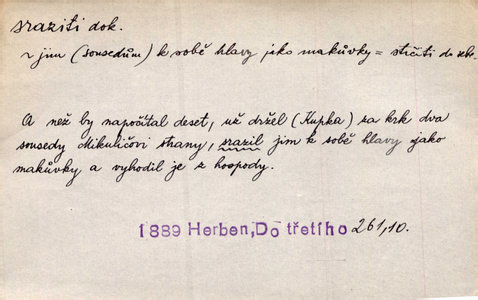 sraziti dok.
~ jim (sousedům) k sobě hlavy jako makůvky = strčiti do sebe.
A než by napočítal deset, už držel (Kupka) za krk dva
sousedy Mikuličovi strany, srazil jim k sobě hlavy jako
makůvky a vyhodil je z hospody.
1889 Herben, Do třetího 261,10.